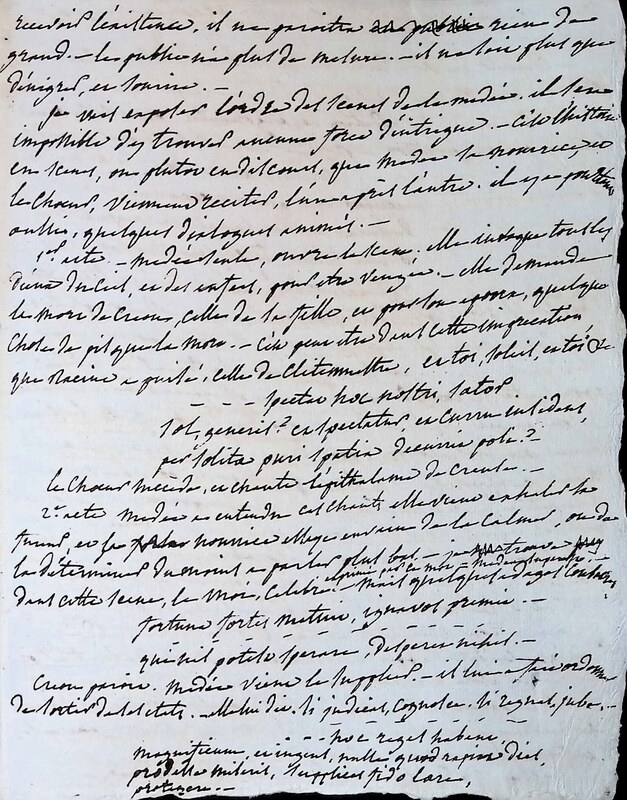 recevoir l'existence, il ne paroitra rien de
grand. - le public n'a plus de mesure. - il ne sait plus que
dénigrer, et sourire. -
je vais exposer l'ordre des scenes de la medée. il sera
impossible d'y trouver aucune force d'intrigue. - c'est l'histoire
en scenes, ou plutot en discours, que medée, la nourrice, et
le Choeur, viennent reciter, l'un après l'autre. il y a pourtant
aussi, quelques dialogues animés. -
1er acte. - medée seule, ouvre la scene. elle invoque tous les
dieux du ciel, et des enfers, pour etre vengée. - elle demande
la mort de Creon, celle de sa fille, et pour son epoux, quelque
chose de pis que la mort. - c'est peut etre dans cette imprecation
que Racine a puisé, celle de Clitemnestre, et toi, soleil, et toi &
- - - spectat hoc nostri sator
sol, generis? et spectatur et curru insidens,
per solita puri spatia decurrit poli?
le Choeur succede, et chante l'epithalame de Creuse. -
2e acte medée a entendu ces chants, elle vient exhaler sa
fureur, et sa nourrice essaye en vain de la calmer, ou de
la determiner du moins a parler plus bas. - je trouve
dans cette scene, le mot, celebre. - mais quelques adages
fortuna fortes metuit, ignavos premit. -
qui nil potest sperare, desperet nihil. -
Creon paroit. medée vient le supplier. - il lui a fait ordonner
de sortir de ses etats. - elle lui dit. si judicas, cognosce. si regnas, jube. -
- - hoc reges habent
magnificum, et ingens, nulla quod rapiat dies
prodesse miseris, supplices fido lare,
protegere. -